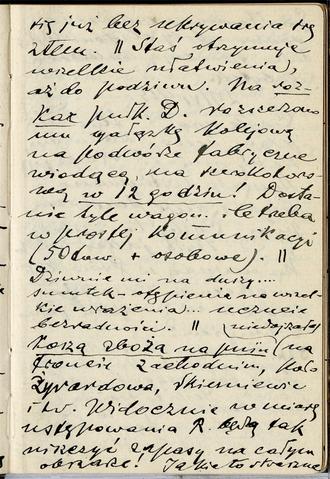 się już bez ukrywania się
złem. || Staś otrzymuje
wielkie ułatwienia,
aż do podziwu. Na roz-
kaz pułk. D. rozszerzono
mu gałązkę kolejową
na podwórze fabryczne
wiodącą, na szerokotoro-
wą w 12 godzin! Dosta-
nie tyle wagon. ile trzeba
w prostej komunikacji
(50 tow. + osobowe). ||
Dziwnie mi na duszy....
smutek - otępienie na wiel-
kie wrażenia... uczucie
bezradności. || (niedojrzałe)
Koszą zboża na pniu (na
froncie zachodnim, koło
Żyrardowa, Skierniewic
i tw. Widocznie w miarę
ustępowania R. będą tak
niszczyć zapasy na całym
obszarze! Jakie to straszne